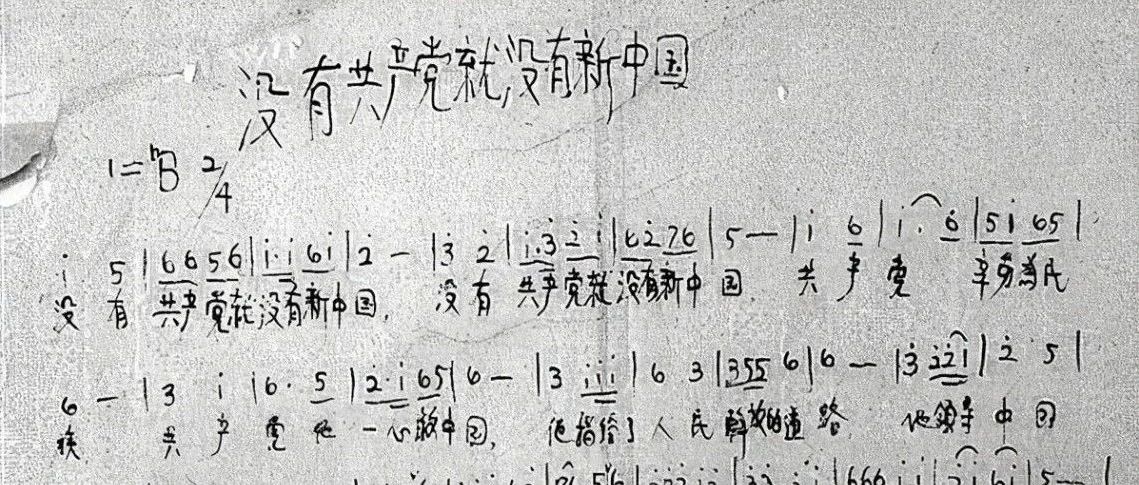 没有共产党就没有新中国
1=ᵇB 2/4
i̇ 5 | 6 6 5 6 | i̇·i̇ 6 i̇ | 2̇ — | 3̇ 2̇ | i̇·3̇ 2̇ i̇ | 6 2̇ 7 6 | 5 — | i̇ 6 | i̇· 6 | 5 i̇ 6 5 |
没 有 共产党就没有新中国, 没 有 共产党就没有新中国. 共 产 党 辛劳为民
6 — | 3 i̇ | 6· 5 | 2̇·i̇ 6 5 | 6 — | 3 i̇ i̇ i̇ | 6 3 | 3 5 5 6 | 6 — | 3̇ 2̇ 2̇ i̇ | 2̇ 5 |
族. 共 产 党 他 一心救中国, 他指给了 人 民 解放的道 路 他领导 中 国